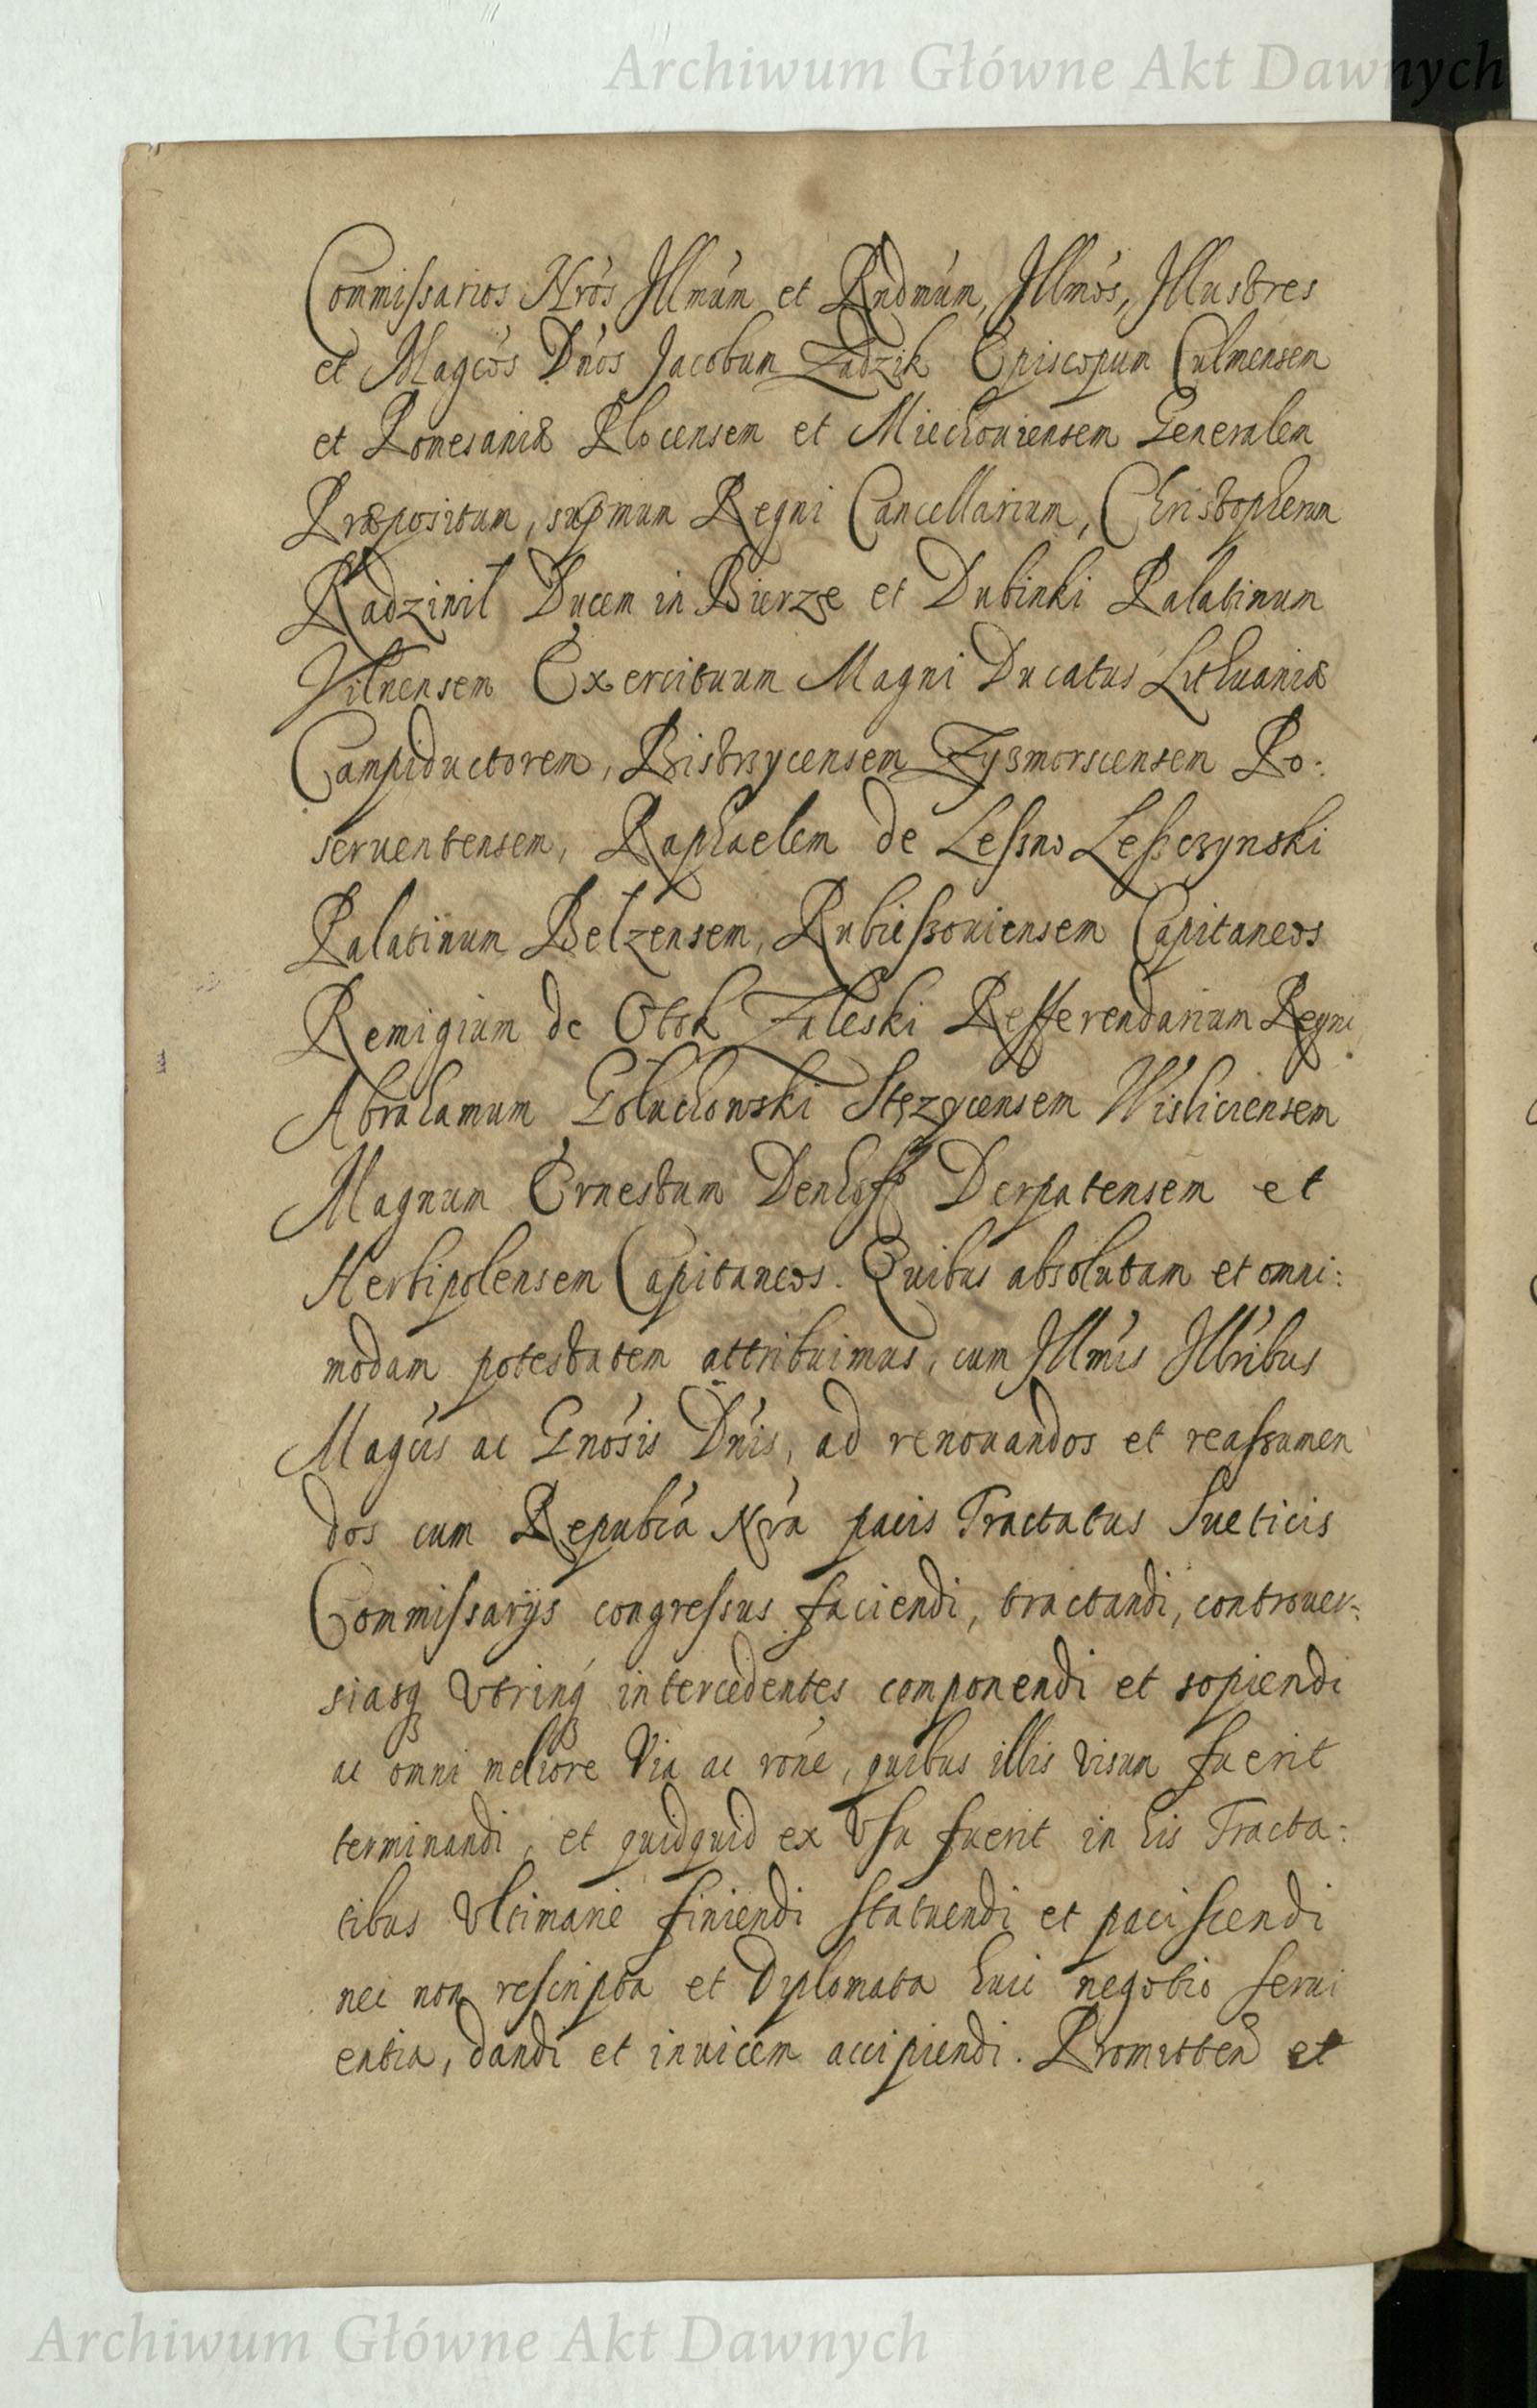 Archiwum Główne Akt Dawnych
Commissarios Nros Illmum et Rndmum, Illmos, Illustres
et Magcos Dnos Jacobum Zadzik Episcopum Culmensem
et Pomesaniæ Plocensem et Miechouiensem Generalem
Præpositum, supmum Regni Cancellarium, Christopherum
Radziwil Ducem in Bierze et Dubinki Palatinum
Vilnensem Exercituum Magni Ducatus Lithuaniæ
Campiductorem, Bistrzycensem Zyzmorscensem Po:
seruentensem, Raphaelem de Leszno Leszczynski
Palatinum Belzensem, Rubieszouiensem Capitaneos
Remigium de Otok Zaleski Refferendarium Regni
Abrahamum Goluchowski Stęzycensem Wisliciensem
Magnum Ernestum Denhoff Derpatensem et
Herbipolensem Capitaneos. Quibus absolutam et omni:
modam potestatem attribuimus, cum Illmis Illribus
Magcis ac Gnosis Dnis, ad renouandos et reassumen
dos cum Republca Nra pacis Tractatus Sueticis
Commissarijs congressus faciendi, tractandi, controuer:
siasq Vtrinq intercedentes componendi et sopiendi
ac omni meliore Via ac rone, quibus illis visum fuerit
terminandi, et quidquid ex Vsu fuerit in his Tracta:
tibus Vltimarie finiendi statuendi et paciscendi
nec non rescripta et Diplomata huic negotio serui
entia, dandi et inuicem accipiendi. Promitten et
Archiwum Główne Akt Dawnych